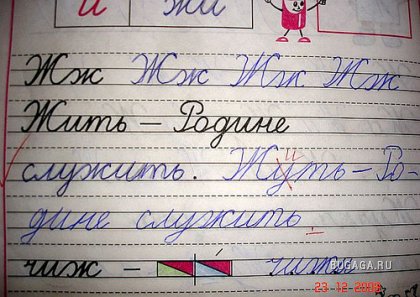 и жи
Жж Жж Жж Жж
Жить – Родине
служить. Жуть – Ро-
и
дине служить
чиж – чиж
BUGAGA.RU
23 12 2008